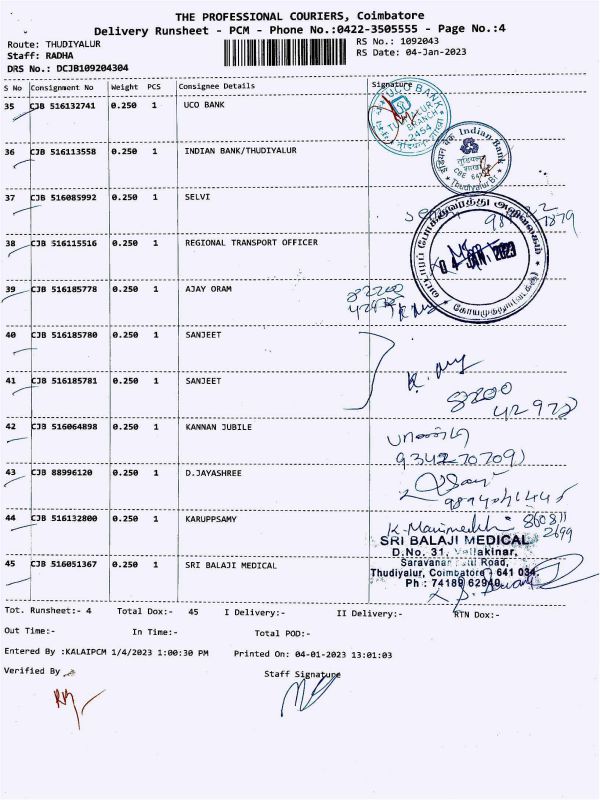 THE PROFESSIONAL COURIERS, Coimbatore
Delivery Runsheet - PCM - Phone No.:0422-3505555 - Page No.:4
Route: THUDIYALUR RS No.: 1092043
Staff: RADHA RS Date: 04-Jan-2023
DRS No.: DCJB109204304
S No Consignment No Weight PCS Consignee Details Signature
35 CJB 516132741 0.250 1 UCO BANK
UCO BANK
BRANCH
2454
36 CJB 516113558 0.250 1 INDIAN BANK/THUDIYALUR
इंडियन बैंक Indian Bank
Thudiyalur Br.
37 CJB 516085992 0.250 1 SELVI
38 CJB 516115516 0.250 1 REGIONAL TRANSPORT OFFICER
04 JAN 2023
39 CJB 516185778 0.250 1 AJAY ORAM
40 CJB 516185780 0.250 1 SANJEET
41 CJB 516185781 0.250 1 SANJEET
8200
42972
42 CJB 516064898 0.250 1 KANNAN JUBILE
9342707091
43 CJB 88996120 0.250 1 D.JAYASHREE
44 CJB 516132800 0.250 1 KARUPPSAMY
45 CJB 516051367 0.250 1 SRI BALAJI MEDICAL
SRI BALAJI MEDICAL
D.No. 31, Vellakinar,
Saravanan Road,
Thudiyalur, Coimbatore - 641 034
Ph : 74189 62940
Tot. Runsheet:- 4 Total Dox:- 45 I Delivery:- II Delivery:- RTN Dox:-
Out Time:- In Time:- Total POD:-
Entered By :KALAIPCM 1/4/2023 1:00:30 PM Printed On: 04-01-2023 13:01:03
Verified By Staff Signature